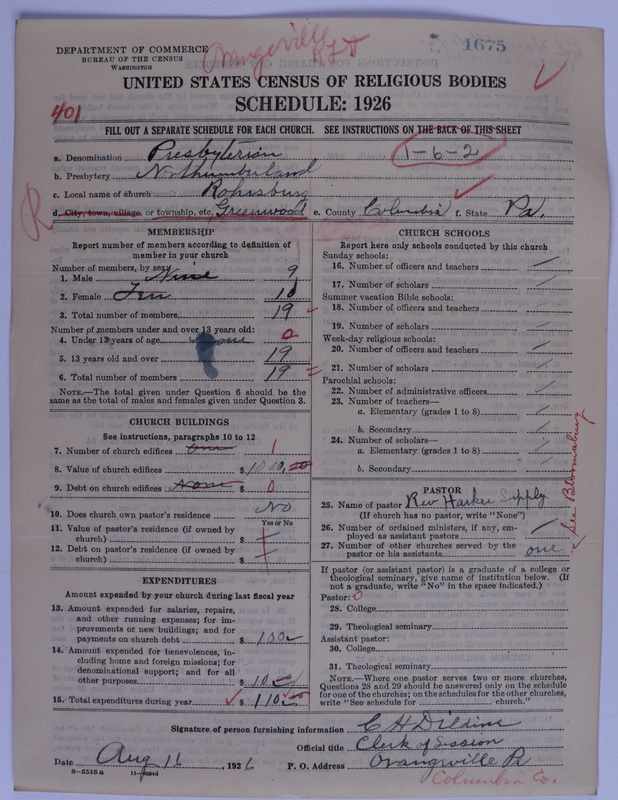 DEPARTMENT OF COMMERCE
BUREAU OF THE CENSUS
WASHINGTON
Orangeville
RFD
1675
UNITED STATES CENSUS OF RELIGIOUS BODIES
SCHEDULE: 1926
401
FILL OUT A SEPARATE SCHEDULE FOR EACH CHURCH. SEE INSTRUCTIONS ON THE BACK OF THIS SHEET
a. Denomination Presbyterian
1-6-2
b. Presbytery Northumberland
c. Local name of church Rohrsburg
R
d. City, town, village, or township, etc. Greenwood e. County Columbia f. State Pa.
MEMBERSHIP
Report number of members according to definition of member in your church
Number of members, by sex:
1. Male Nine 9
2. Female Ten 10
3. Total number of members 19
Number of members under and over 13 years old:
4. Under 13 years of age none 0
5. 13 years old and over 19
6. Total number of members 19
NOTE.—The total given under Question 6 should be the same as the total of males and females given under Question 3.
CHURCH BUILDINGS
See instructions, paragraphs 10 to 12
7. Number of church edifices one 1
8. Value of church edifices $1000.00
9. Debt on church edifices None $ 0
10. Does church own pastor's residence No
Yes or No
11. Value of pastor's residence (if owned by church) $
12. Debt on pastor's residence (if owned by church) $
EXPENDITURES
Amount expended by your church during last fiscal year
13. Amount expended for salaries, repairs, and other running expenses; for improvements or new buildings; and for payments on church debt $ 100
14. Amount expended for benevolences, including home and foreign missions; for denominational support; and for all other purposes $ 10
15. Total expenditures during year $ 110
CHURCH SCHOOLS
Report here only schools conducted by this church
Sunday schools:
16. Number of officers and teachers
17. Number of scholars
Summer vacation Bible schools:
18. Number of officers and teachers
19. Number of scholars
Week-day religious schools:
20. Number of officers and teachers
21. Number of scholars
Parochial schools:
22. Number of administrative officers
23. Number of teachers—
a. Elementary (grades 1 to 8)
b. Secondary
24. Number of scholars—
a. Elementary (grades 1 to 8)
b. Secondary
PASTOR
25. Name of pastor Rev Harker Supply
(If church has no pastor, write "None")
26. Number of ordained ministers, if any, employed as assistant pastors
27. Number of other churches served by the pastor or his assistants one
See Bloomsburg
If pastor (or assistant pastor) is a graduate of a college or theological seminary, give name of institution below. (If not a graduate, write "No" in the space indicated.)
Pastor: 0
28. College
29. Theological seminary
Assistant pastor:
30. College
31. Theological seminary
NOTE.—Where one pastor serves two or more churches, Questions 28 and 29 should be answered only on the schedule for one of the churches; on the schedules for the other churches, write "See schedule for church."
Signature of person furnishing information C H Dildine
Official title Clerk of Session
Date Aug 16, 1926 P. O. Address Orangeville Pa
8-5518a
Columbia Co.